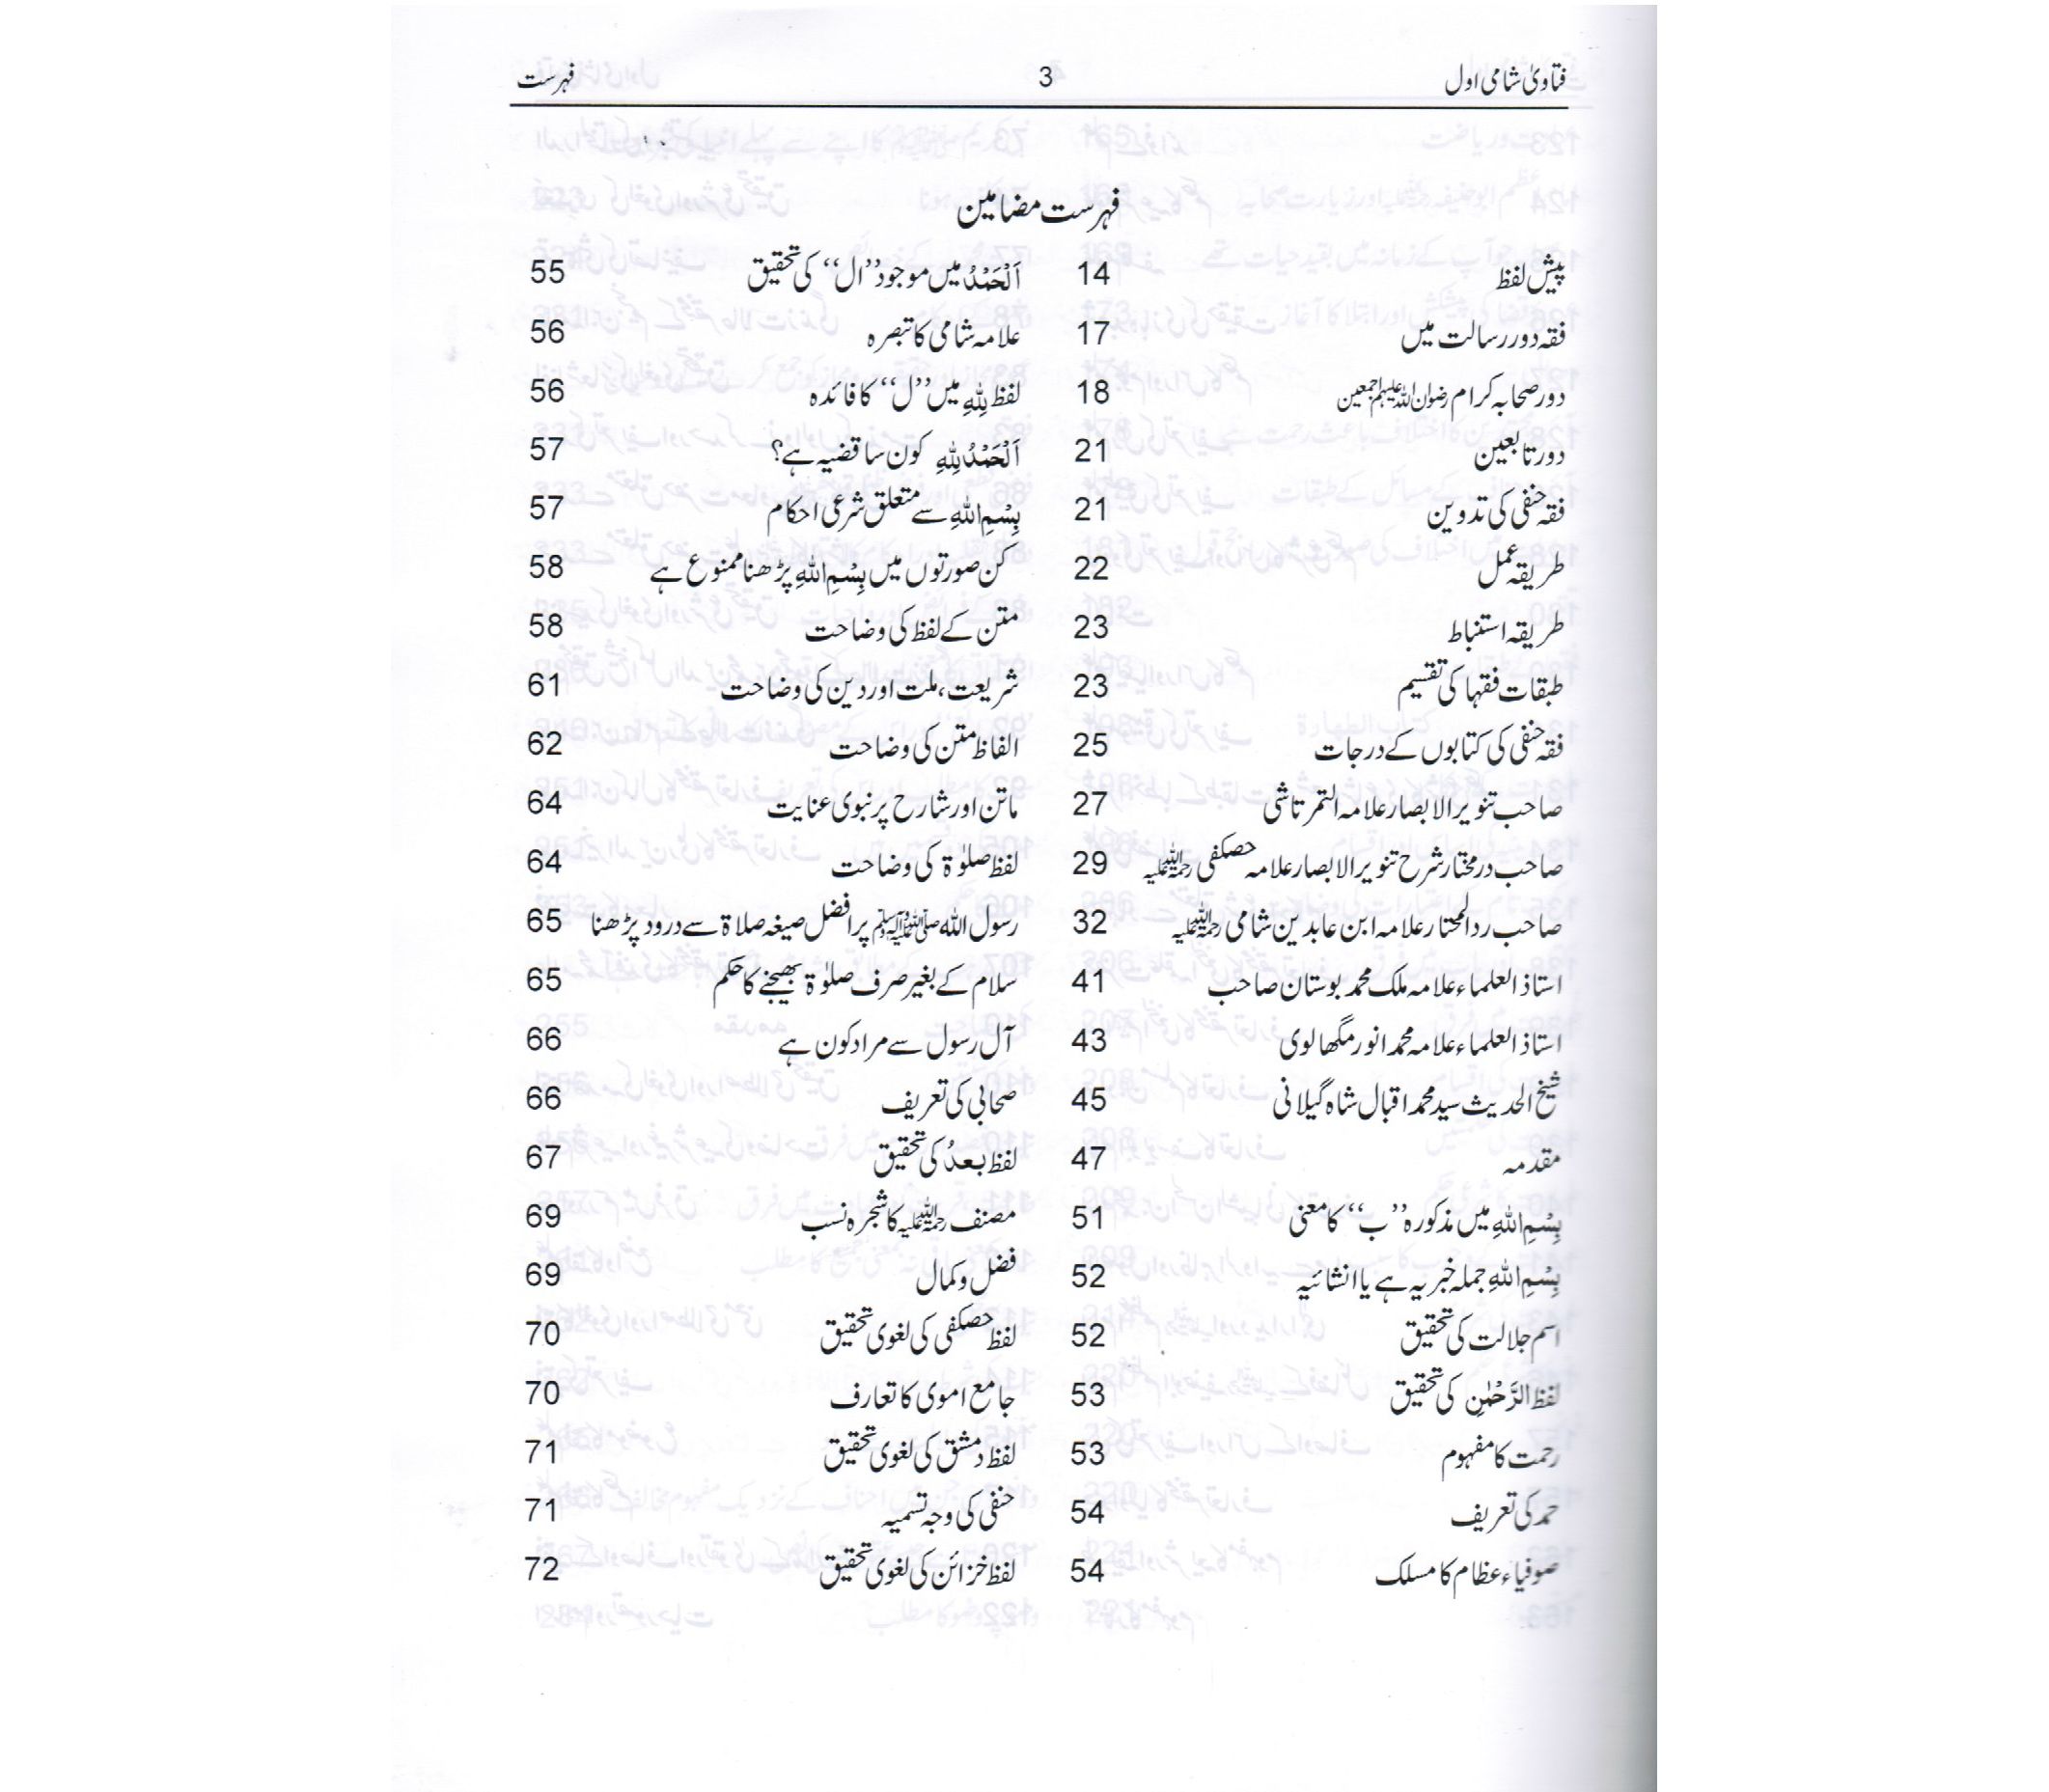 فتاویٰ شامی اول 3 فہرست
فہرست مضامین
پیش لفظ 14
فقہ دور رسالت میں 17
دور صحابہ کرام رضوان اللہ علیہم اجمعین 18
دور تابعین 21
فقہ حنفی کی تدوین 21
طریقہ عمل 22
طریقہ استنباط 23
طبقات فقہا کی تقسیم 23
فقہ حنفی کی کتابوں کے درجات 25
صاحب تنویر الابصار علامہ التمرتاشی 27
صاحب در مختار شرح تنویر الابصار علامہ حصکفی رحمۃ اللہ علیہ 29
صاحب رد المحتار علامہ ابن عابدین شامی رحمۃ اللہ علیہ 32
استاذ العلماء علامہ ملک محمد بوستان صاحب 41
استاذ العلماء علامہ محمد انور مگھالوی 43
شیخ الحدیث سید محمد اقبال شاہ گیلانی 45
مقدمہ 47
بِسْمِ اللهِ میں مذکورہ ”ب“ کا معنی 51
بِسْمِ اللهِ جملہ خبریہ ہے یا انشائیہ 52
اسم جلالت کی تحقیق 52
لفظ الرَّحْمٰنِ کی تحقیق 53
رحمت کا مفہوم 53
حمد کی تعریف 54
صوفیاء عظام کا مسلک 54
اَلْحَمْدُ میں موجود ”ال“ کی تحقیق 55
علامہ شامی کا تبصرہ 56
لفظ لِلهِ میں ”ل“ کا فائدہ 56
اَلْحَمْدُ لِلهِ کون سا قضیہ ہے؟ 57
بِسْمِ اللهِ سے متعلق شرعی احکام 57
کن صورتوں میں بِسْمِ اللهِ پڑھنا ممنوع ہے 58
متن کے لفظ کی وضاحت 58
شریعت، ملت اور دین کی وضاحت 61
الفاظ متن کی وضاحت 62
ماتن اور شارح پر نبوی عنایت 64
لفظ صلوٰۃ کی وضاحت 64
رسول اللہ ﷺ پر افضل صیغہ صلاۃ سے درود پڑھنا 65
سلام کے بغیر صرف صلوٰۃ بھیجنے کا حکم 65
آل رسول سے مراد کون ہے 66
صحابی کی تعریف 66
لفظ بعدُ کی تحقیق 67
مصنف رحمۃ اللہ علیہ کا شجرہ نسب 69
فضل و کمال 69
لفظ حصکفی کی لغوی تحقیق 70
جامع اموی کا تعارف 70
لفظ دمشق کی لغوی تحقیق 71
حنفی کی وجہ تسمیہ 71
لفظ خزائن کی لغوی تحقیق 72